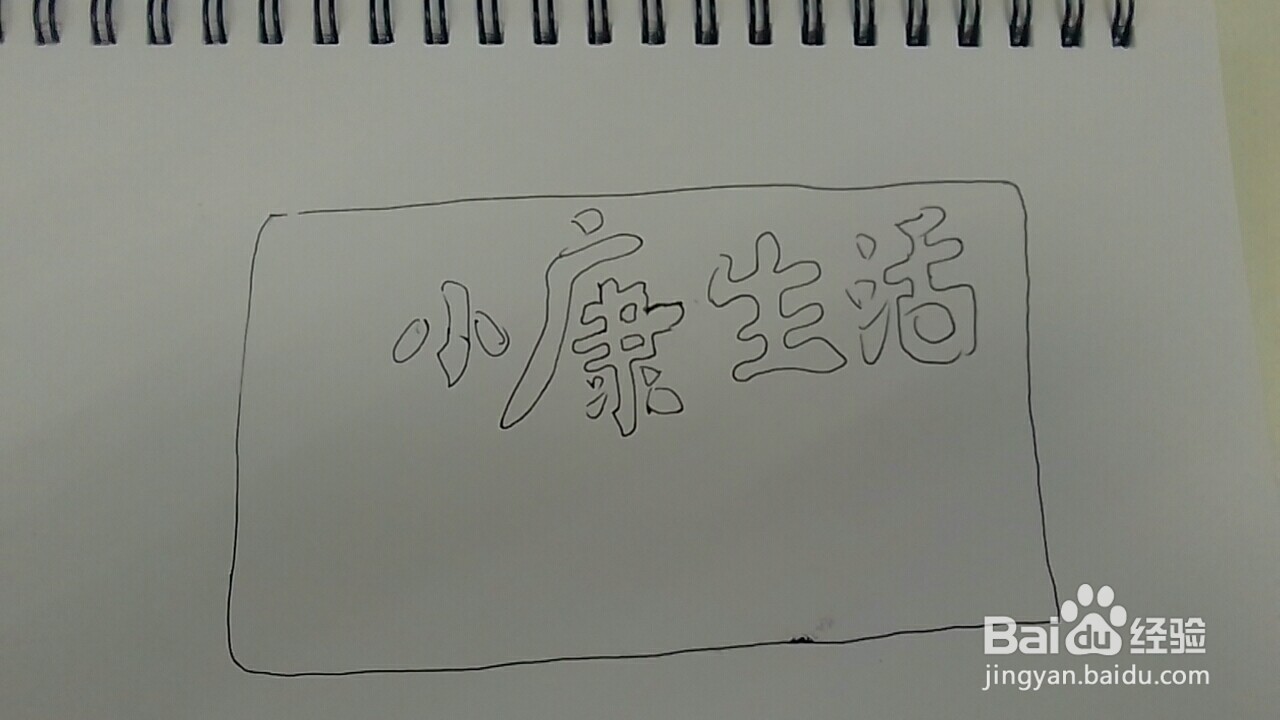 小康生活
Baidu经验
jingyan.baidu.com